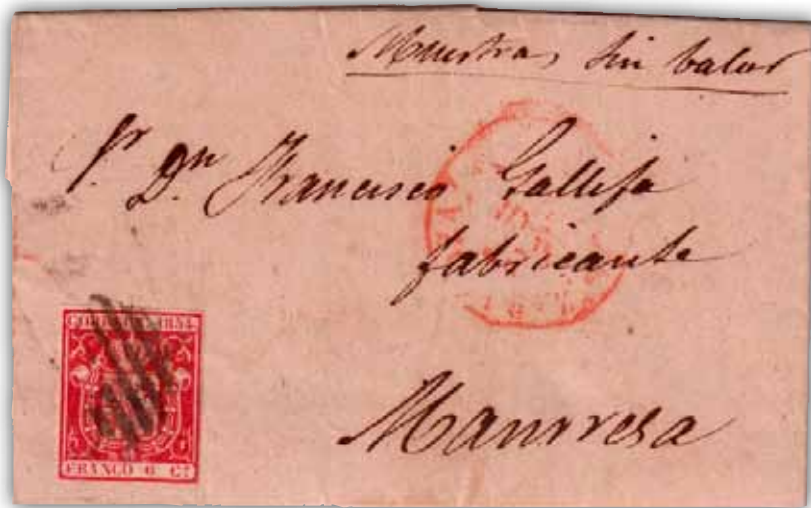 Muestras sin valor
Sr. Dn. Francisco Gallifa
fabricante
Manresa
CORREOS 1854.
FRANCO 6 Cs.